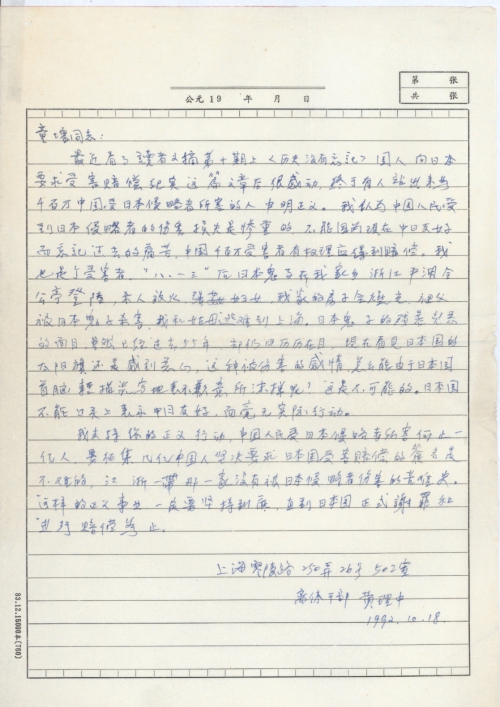 第 张
共 张
公元19 年 月 日
童增同志:
最近看了读者文摘第十期上《历史没有忘记》国人向日本
要求受害赔偿纪实这篇文章后很感动,终于有人站出来为
千百万中国受日本侵略者所害的人申明正义。我认为中国人民受
到日本侵略者的伤害损失是惨重的,不能因为现在中日友好
而忘记过去的痛苦,中国千百万受害者有权理应得到赔偿。我
也是个受害者,"八.一三"后日本鬼子在我家乡浙江平湖全
公亭登陆,杀人放火强奸妇女,我家的房子全烧光,祖父
被日本鬼子杀害,我和姑母逃难到上海,日本鬼子的残暴凶恶
的面目虽然已经过去55年,却仍旧历历在目,现在看见日本国的
太阳旗还是感到恶心,这种被伤害的感情,怎么能由于日本国
首脑轻描淡写地表示歉亲所抹掉呢?这是不可能的。日本国
不能口头上表示中日友好,而毫无实际行动。
我支持你的正义行动,中国人民受日本侵略者所害何止一
亿人,要征集几亿中国人坚决要求日本国受害赔偿的签名是
不难的,江浙一带那一家没有被日本侵略者伤害的
这样的正义事业一定要坚持到底,直到日本国正式謝罪和
进行赔偿为止。
上海零陵路250弄26号502室
离休干部 黄理中
1992.10.18.
83.12.15000本(760)